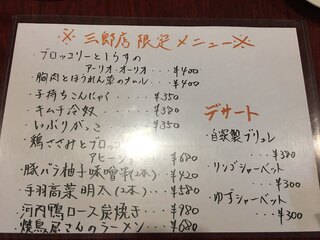 ※三郎店限定メニュー※
・ブロッコリーとしらすの
アーリオ・オーリオ・・・¥400
・胸肉とほうれん草のナムル・¥400
・子持ちこんにゃく・・¥350
・キムチ冷奴・・・¥380
・いぶりがっこ・・¥350
・鶏ささみとブロッコ
アヒージョ・・¥680
・豚バラ柚子味噌串(2本)・・¥420
・手羽高菜明太(2本)・・¥580
・河内鴨ロース炭焼き・・¥980
・焼鳥屋さんのラーメン・・¥680
デザート
・自家製ブリュレ
・・・¥380
・リンゴシャーベット
・・・¥300
・ゆずシャーベット
・・・¥300